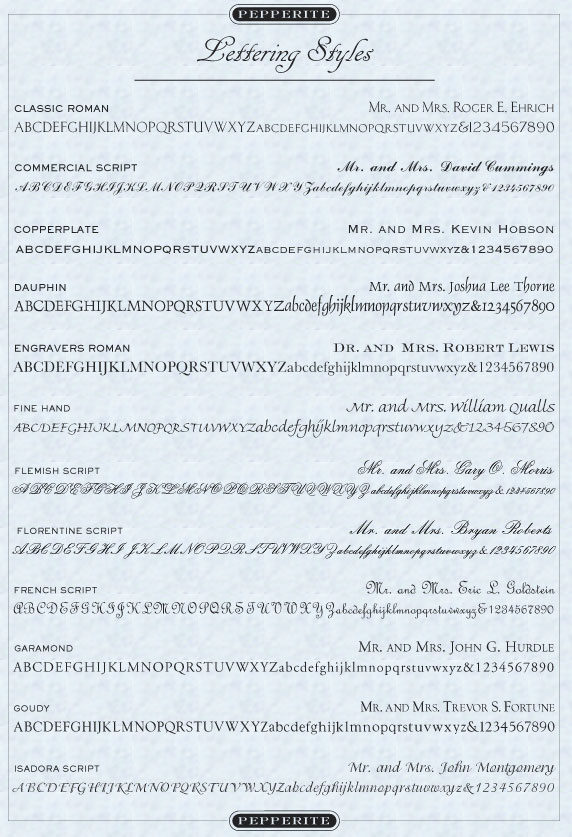 PEPPERITE
Lettering Styles
CLASSIC ROMAN Mr. and Mrs. Roger E. Ehrich
ABCDEFGHIJKLMNOPQRSTUVWXYZABCDEFGHIJKLMNOPQRSTUVWXYZ&1234567890
COMMERCIAL SCRIPT Mr. and Mrs. David Cummings
ABCDEFGHIJKLMNOPQRSTUVWXYZabcdefghijklmnopqrstuvwxyz&1234567890
COPPERPLATE Mr. and Mrs. Kevin Hobson
ABCDEFGHIJKLMNOPQRSTUVWXYZABCDEFGHIJKLMNOPQRSTUVWXYZ&1234567890
DAUPHIN Mr. and Mrs. Joshua Lee Thorne
ABCDEFGHIJKLMNOPQRSTUVWXYZabcdefghijklmnopqrstuvwxyz&1234567890
ENGRAVERS ROMAN Dr. and Mrs. Robert Lewis
ABCDEFGHIJKLMNOPQRSTUVWXYZabcdefghijklmnopqrstuvwxyz&1234567890
FINE HAND Mr. and Mrs. William Qualls
ABCDEFGHIJKLMNOPQRSTUVWXYZabcdefghijklmnopqrstuvwxyz&1234567890
FLEMISH SCRIPT Mr. and Mrs. Gary O. Morris
ABCDEFGHIJKLMNOPQRSTUVWXYZabcdefghijklmnopqrstuvwxyz & 1234567890
FLORENTINE SCRIPT Mr. and Mrs. Bryan Roberts
ABCDEFGHIJKLMNOPQRSTUVWXYZabcdefghijklmnopqrstuvwxyz & 1234567890
FRENCH SCRIPT Mr. and Mrs. Eric L. Goldstein
ABCDEFGHIJKLMNOPQRSTUVWXYZabcdefghijklmnopqrstuvwxyz&1234567890
GARAMOND Mr. and Mrs. John G. Hurdle
ABCDEFGHIJKLMNOPQRSTUVWXYZabcdefghijklmnopqrstuvwxyz&1234567890
GOUDY Mr. and Mrs. Trevor S. Fortune
ABCDEFGHIJKLMNOPQRSTUVWXYZabcdefghijklmnopqrstuvwxyz&1234567890
ISADORA SCRIPT Mr. and Mrs. John Montgomery
ABCDEFGHIJKLMNOPQRSTUVWXYZabcdefghijklmnopqrstuvwxyz&1234567890
PEPPERITE